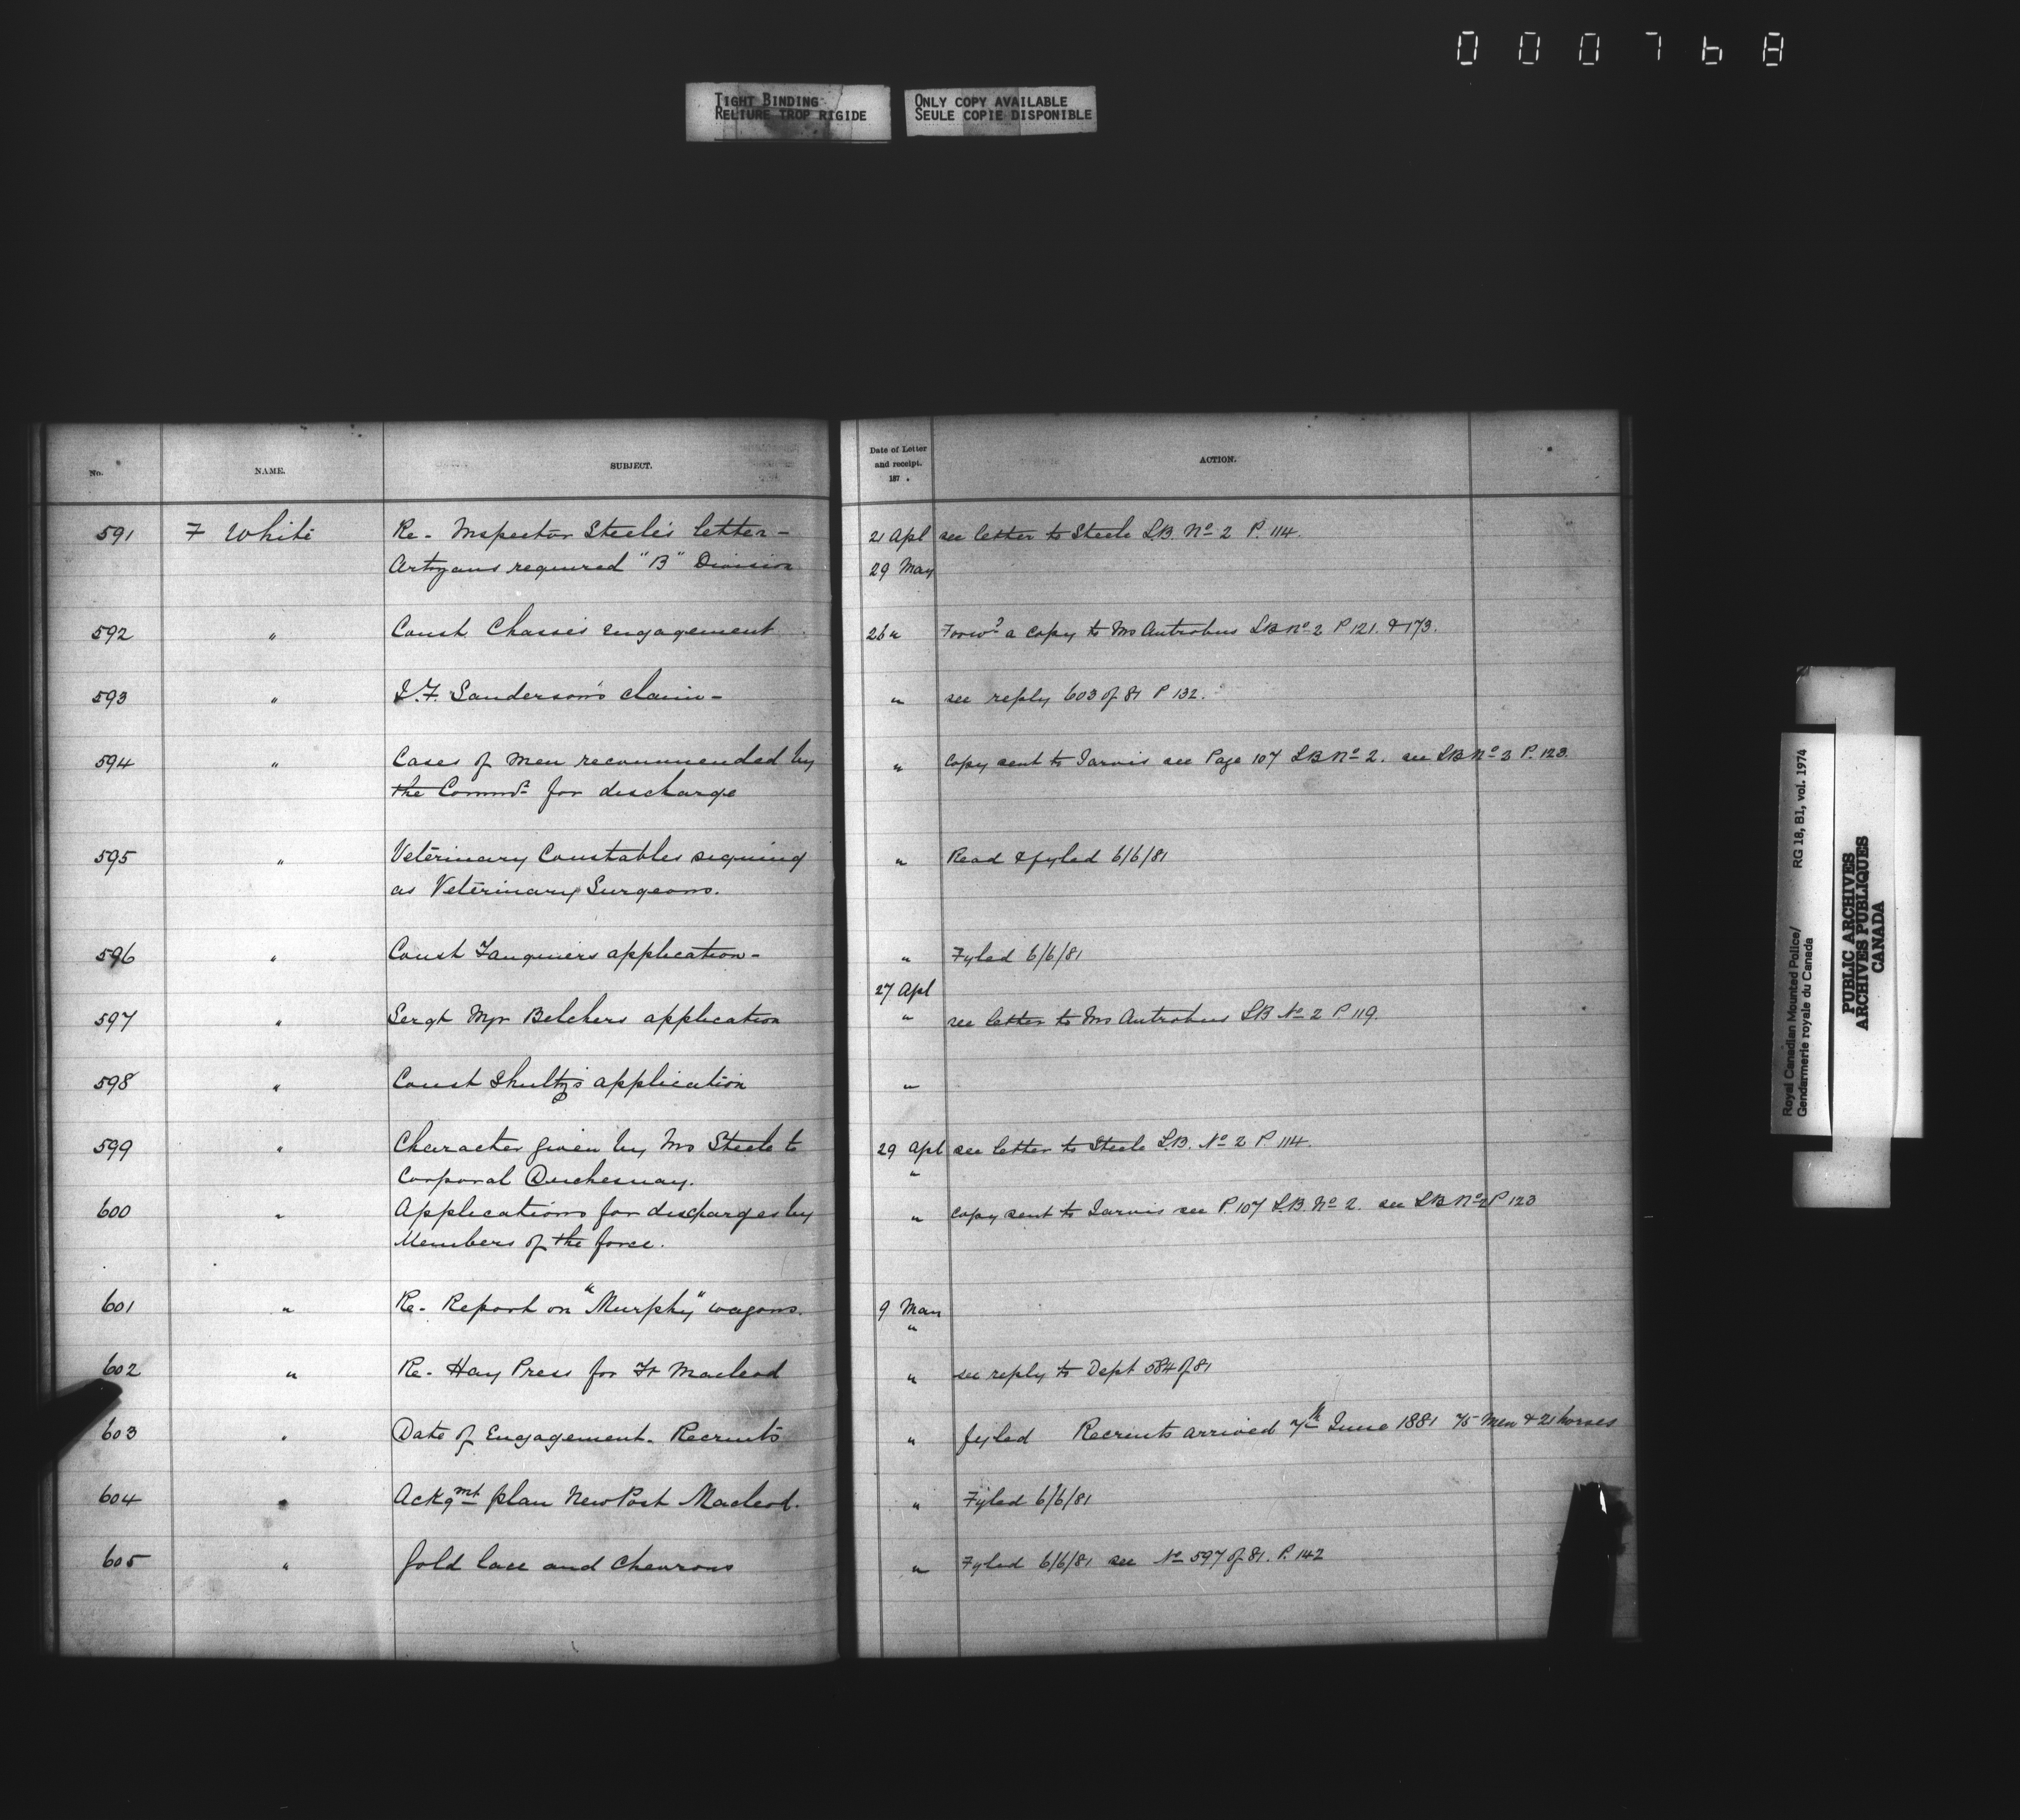 000768
TIGHT BINDING
RELIURE TROP RIGIDE
ONLY COPY AVAILABLE
SEULE COPIE DISPONIBLE
No. NAME. SUBJECT. Date of Letter and receipt. 187 . ACTION.
591 F White Re- Inspector Steele's letter - 21 Apl see letter to Steele L.B. No 2 P. 114.
Artizans required "B" Division 29 May
592 " Const Chasse's engagement 26 " Forwd a copy to Mr Antrobus LB No 2 P 121. & 173.
593 " J.F. Sanderson's claim - " see reply 603 of 81 P 132.
594 " Cases of men recommended by " Copy sent to Jarvis see Page 107 LB No 2. see LB No 3 P. 123.
the Commr for discharge
595 " Veterinary Constables signing " Read & fyled 6/6/81
as Veterinary Surgeons.
596 " Const Fauquiers application - " Fyled 6/6/81
27 Apl
597 " Sergt Mjr Belchers application " see letter to Mr Antrobus LB No 2 P 119.
598 " Const Shultz's application "
599 " Character given by Mr Steele to 29 Apl see letter to Steele L.B. No 2 P. 114.
Corporal Duchesnay. "
600 " Applications for discharges by " Copy sent to Jarvis see P. 107 L.B. No 2. see LB No 2 P 123
Members of the force.
601 " Re- Report on "Murphy" wagons. 9 May
"
602 " Re- Hay Press for Ft Macleod " see reply to Dept 584 of 81
603 " Date of Engagement - Recruits " fyled Recruits arrived 7th June 1881 75 Men & 21 horses
604 " Ackgmt plan New Post Macleod. " Fyled 6/6/81
605 " Gold lace and Chevrons " Fyled 6/6/81 see No 597 of 81. P. 142
Royal Canadian Mounted Police/
Gendarmerie royale du Canada
RG 18, B1, vol. 1974
PUBLIC ARCHIVES
ARCHIVES PUBLIQUES
CANADA